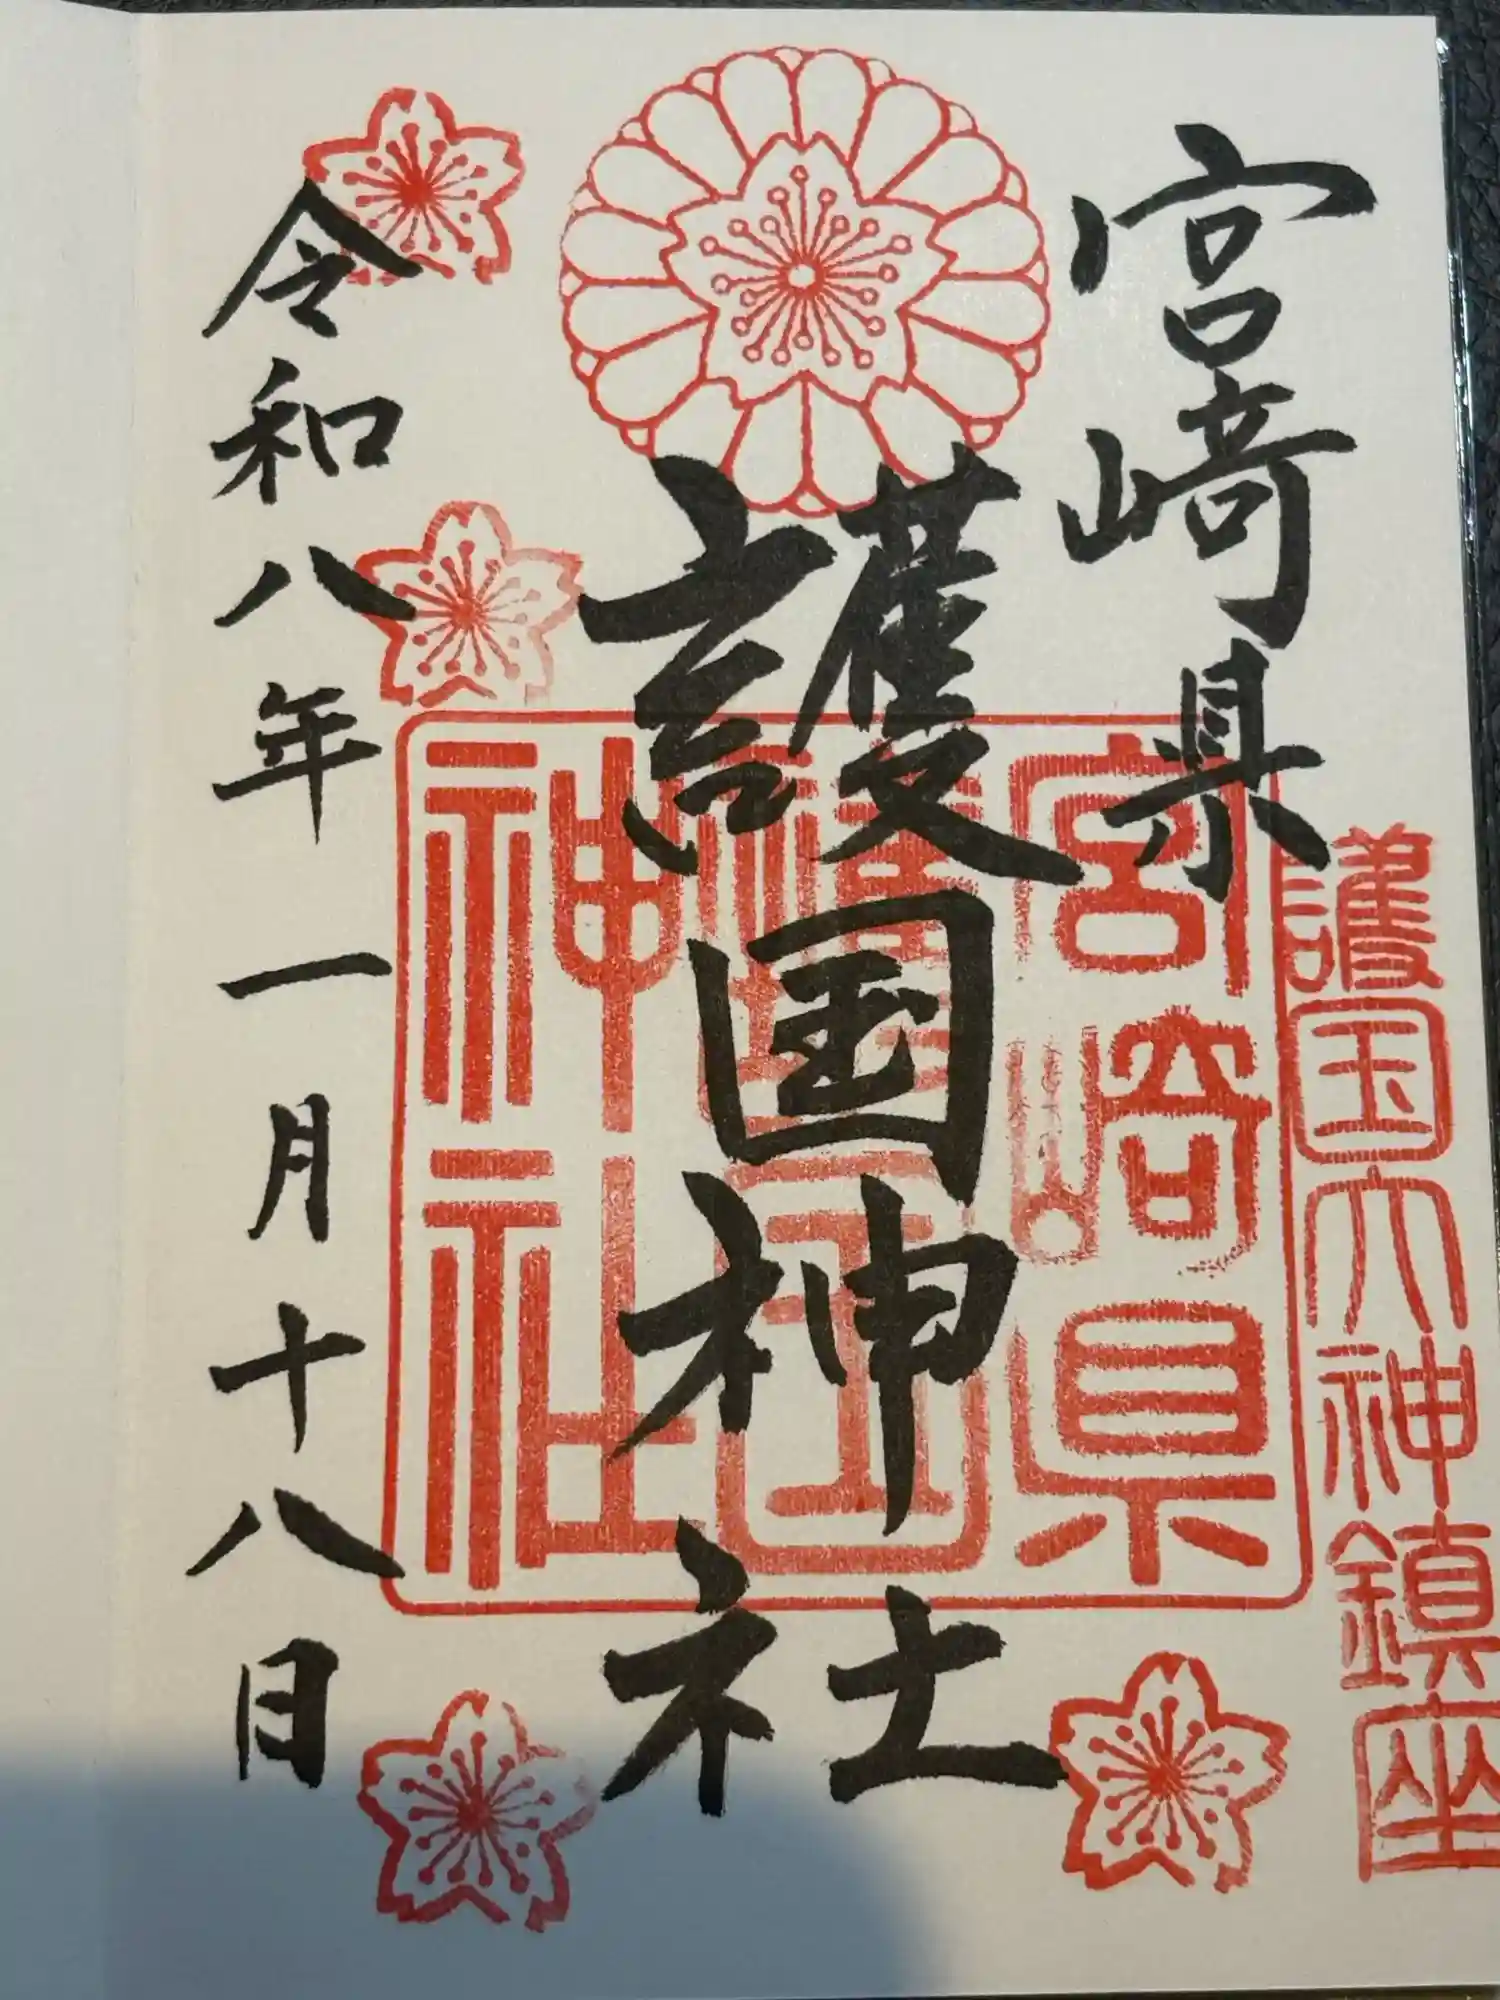 宮崎県
護国神社
令和八年一月十八日
宮崎県
護国
神社
護国大神鎮座